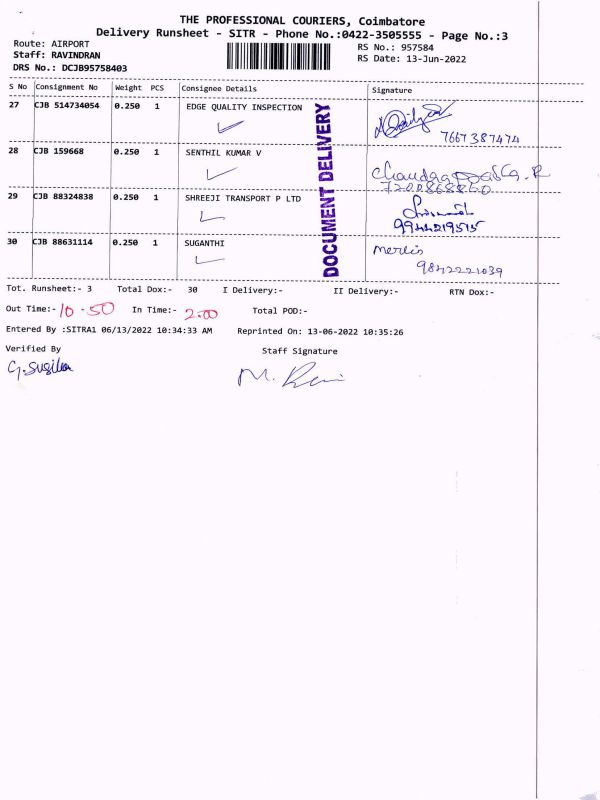 THE PROFESSIONAL COURIERS, Coimbatore
Delivery Runsheet - SITR - Phone No.:0422-3505555 - Page No.:3
Route: AIRPORT
RS No.: 957584
Staff: RAVINDRAN
RS Date: 13-Jun-2022
DRS No.: DCJB95758403
S No Consignment No Weight PCS Consignee Details Signature
27 CJB 514734054 0.250 1 EDGE QUALITY INSPECTION
7667387474
28 CJB 159668 0.250 1 SENTHIL KUMAR V
29 CJB 88324838 0.250 1 SHREEJI TRANSPORT P LTD
9944219515
30 CJB 88631114 0.250 1 SUGANTHI
9842221039
DOCUMENT DELIVERY
Tot. Runsheet:- 3 Total Dox:- 30 I Delivery:- II Delivery:- RTN Dox:-
Out Time:- 10.50 In Time:- 2.00 Total POD:-
Entered By :SITRA1 06/13/2022 10:34:33 AM Reprinted On: 13-06-2022 10:35:26
Verified By Staff Signature
G.Susila